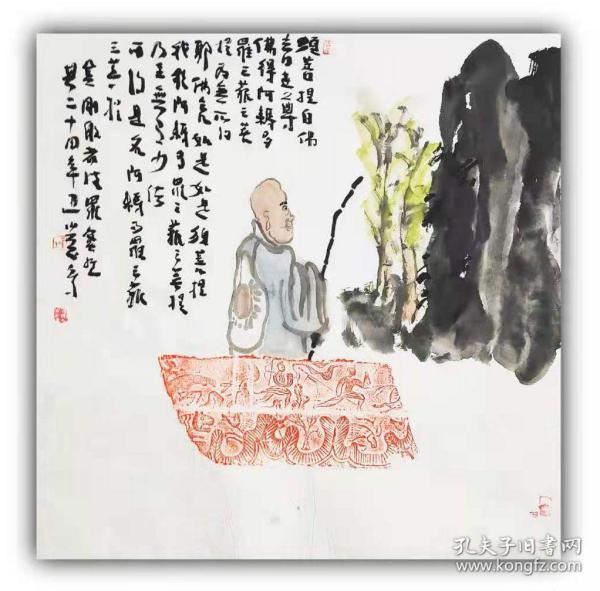 須菩提白佛
言世尊
佛得阿耨多
羅三藐三菩
提为無所得
耶佛言如是如是須菩提
我於阿耨多羅三藐三菩提
乃至無有少法
可得是名阿耨多羅三藐
三菩提
金剛般若波羅蜜經
二十四
孔夫子旧书网
www.kongfz.com